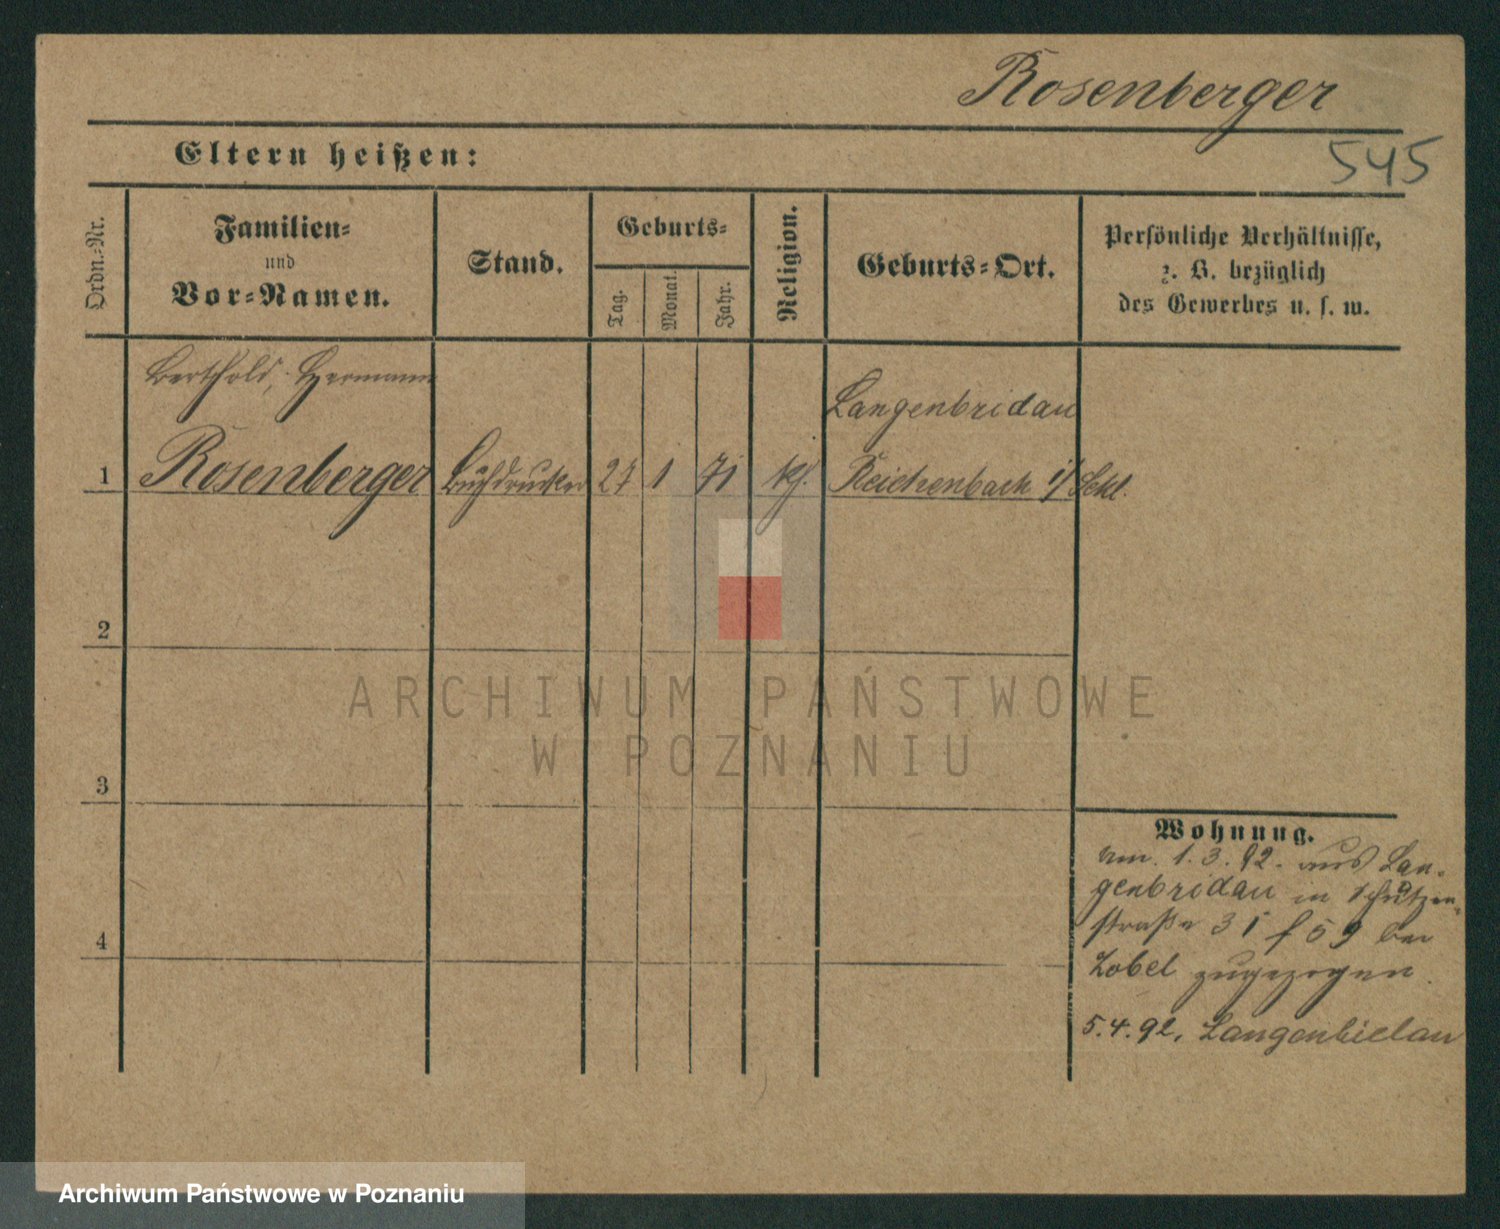 Rosenberger
Eltern heißen:
545
Ordn.-Nr.
Familien-
und
Vor-Namen.
Stand.
Geburts-
Tag.
Monat.
Jahr.
Religion.
Geburts-Ort.
Persönliche Verhältnisse,
z. B. bezüglich
des Gewerbes u. s. w.
Berthold, Hermann
Langenbridau
1 Rosenberger Buchdrucker 27 1 71 Reichenbach i/Schl.
2
3
4
ARCHIWUM PAŃSTWOWE
W POZNANIU
Wohnung.
Am. 1. 3. 92. aus Lan-
genbridau in Schützen-
straße 31 bei
Zobel zugezogen.
5.4.92. Langenbielau
Archiwum Państwowe w Poznaniu